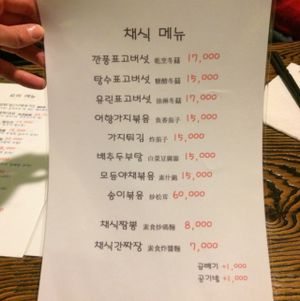 채식 메뉴
깐풍표고버섯 乾烹冬菇 17,000
탕수표고버섯 糖醋冬菇 15,000
유린표고버섯 油淋冬菇 17,000
어향가지볶음 魚香茄子 15,000
가지튀김 炸茄子 15,000
배추두부탕 白菜豆腐湯 15,000
모듬야채볶음 素什錦 15,000
송이볶음 炒松茸 60,000
채식짬뽕 素食炒碼麵 8,000
채식간짜장 素食炸醬麵 7,000
곱빼기 +1,000
공기밥 +1,000